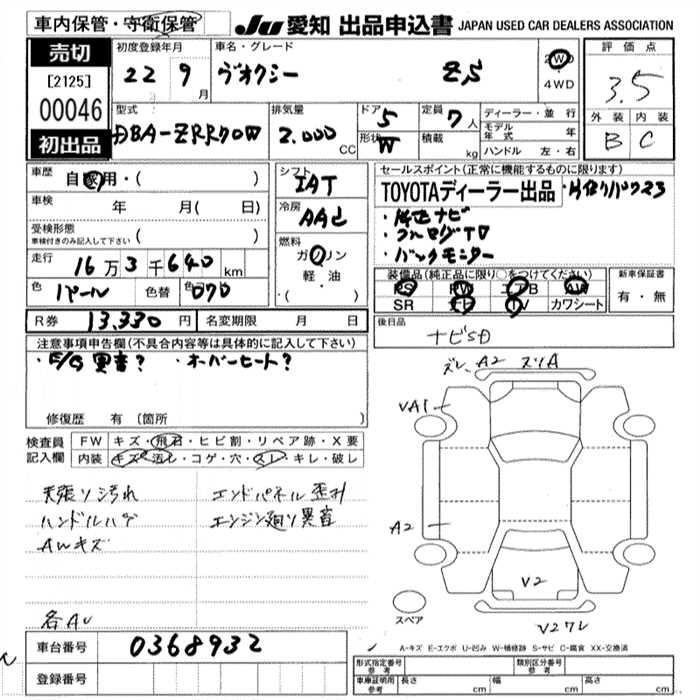 車内保管・守衛保管 JU 愛知 出品申込書 JAPAN USED CAR DEALERS ASSOCIATION
売切
[2125]
00046
初出品
初度登録年月 車名・グレード 2WD 評価点
22 9月 ヴオクシー ZS 4WD 3.5
型式 排気量 ドア 定員 ディーラー・並行 外装 内装
DBA-ZRR70W 2.000CC 5 7人 モデル年式 年 B C
形状 W 積載 kg ハンドル 左・右
車歴 自家用・( ) シフト IAT セールスポイント(正常に機能するものに限ります)
車検 年 月( 日) 冷房 AAC TOYOTAディーラー出品
受検形態 車検付きのみ記入して下さい ( ) ・純正ナビ
燃料 ガソリン 軽・油 ・( )
・バックモニター
走行 16万3千640km 装備品(純正品に限り○をつけてください) 新車保証書
色 パール 色替 色コード 070 PS PW エアB AW 有・無
SR TV カワシート
R券 13,330円 名変期限 月 日 後日品
ナビSD
注意事項申告欄(不具合内容等は具体的に記入して下さい)
・E/G異音? ・オーバーヒート?
修復歴 有 (箇所 )
検査員記入欄 FW キズ・飛石・ヒビ割・リペア跡・X要
内装 キズ・汚レ・コゲ・穴・スレ・キレ・破レ
天張リ汚れ エンドパネル歪み
ハンドルハゲ エンジン廻リ異音
AWキズ
各AU
ズレ A2 スリA
VA1
A2
V2
V2ワレ
スペア
A-キズ E-エクボ U-凹み W-補修跡 S-サビ C-腐食 XX-交換済
車台番号 0368932
登録番号
形式指定番号 参考 類別区分番号 参考
車庫証明用 参考 長さ cm 幅 cm 高さ cm